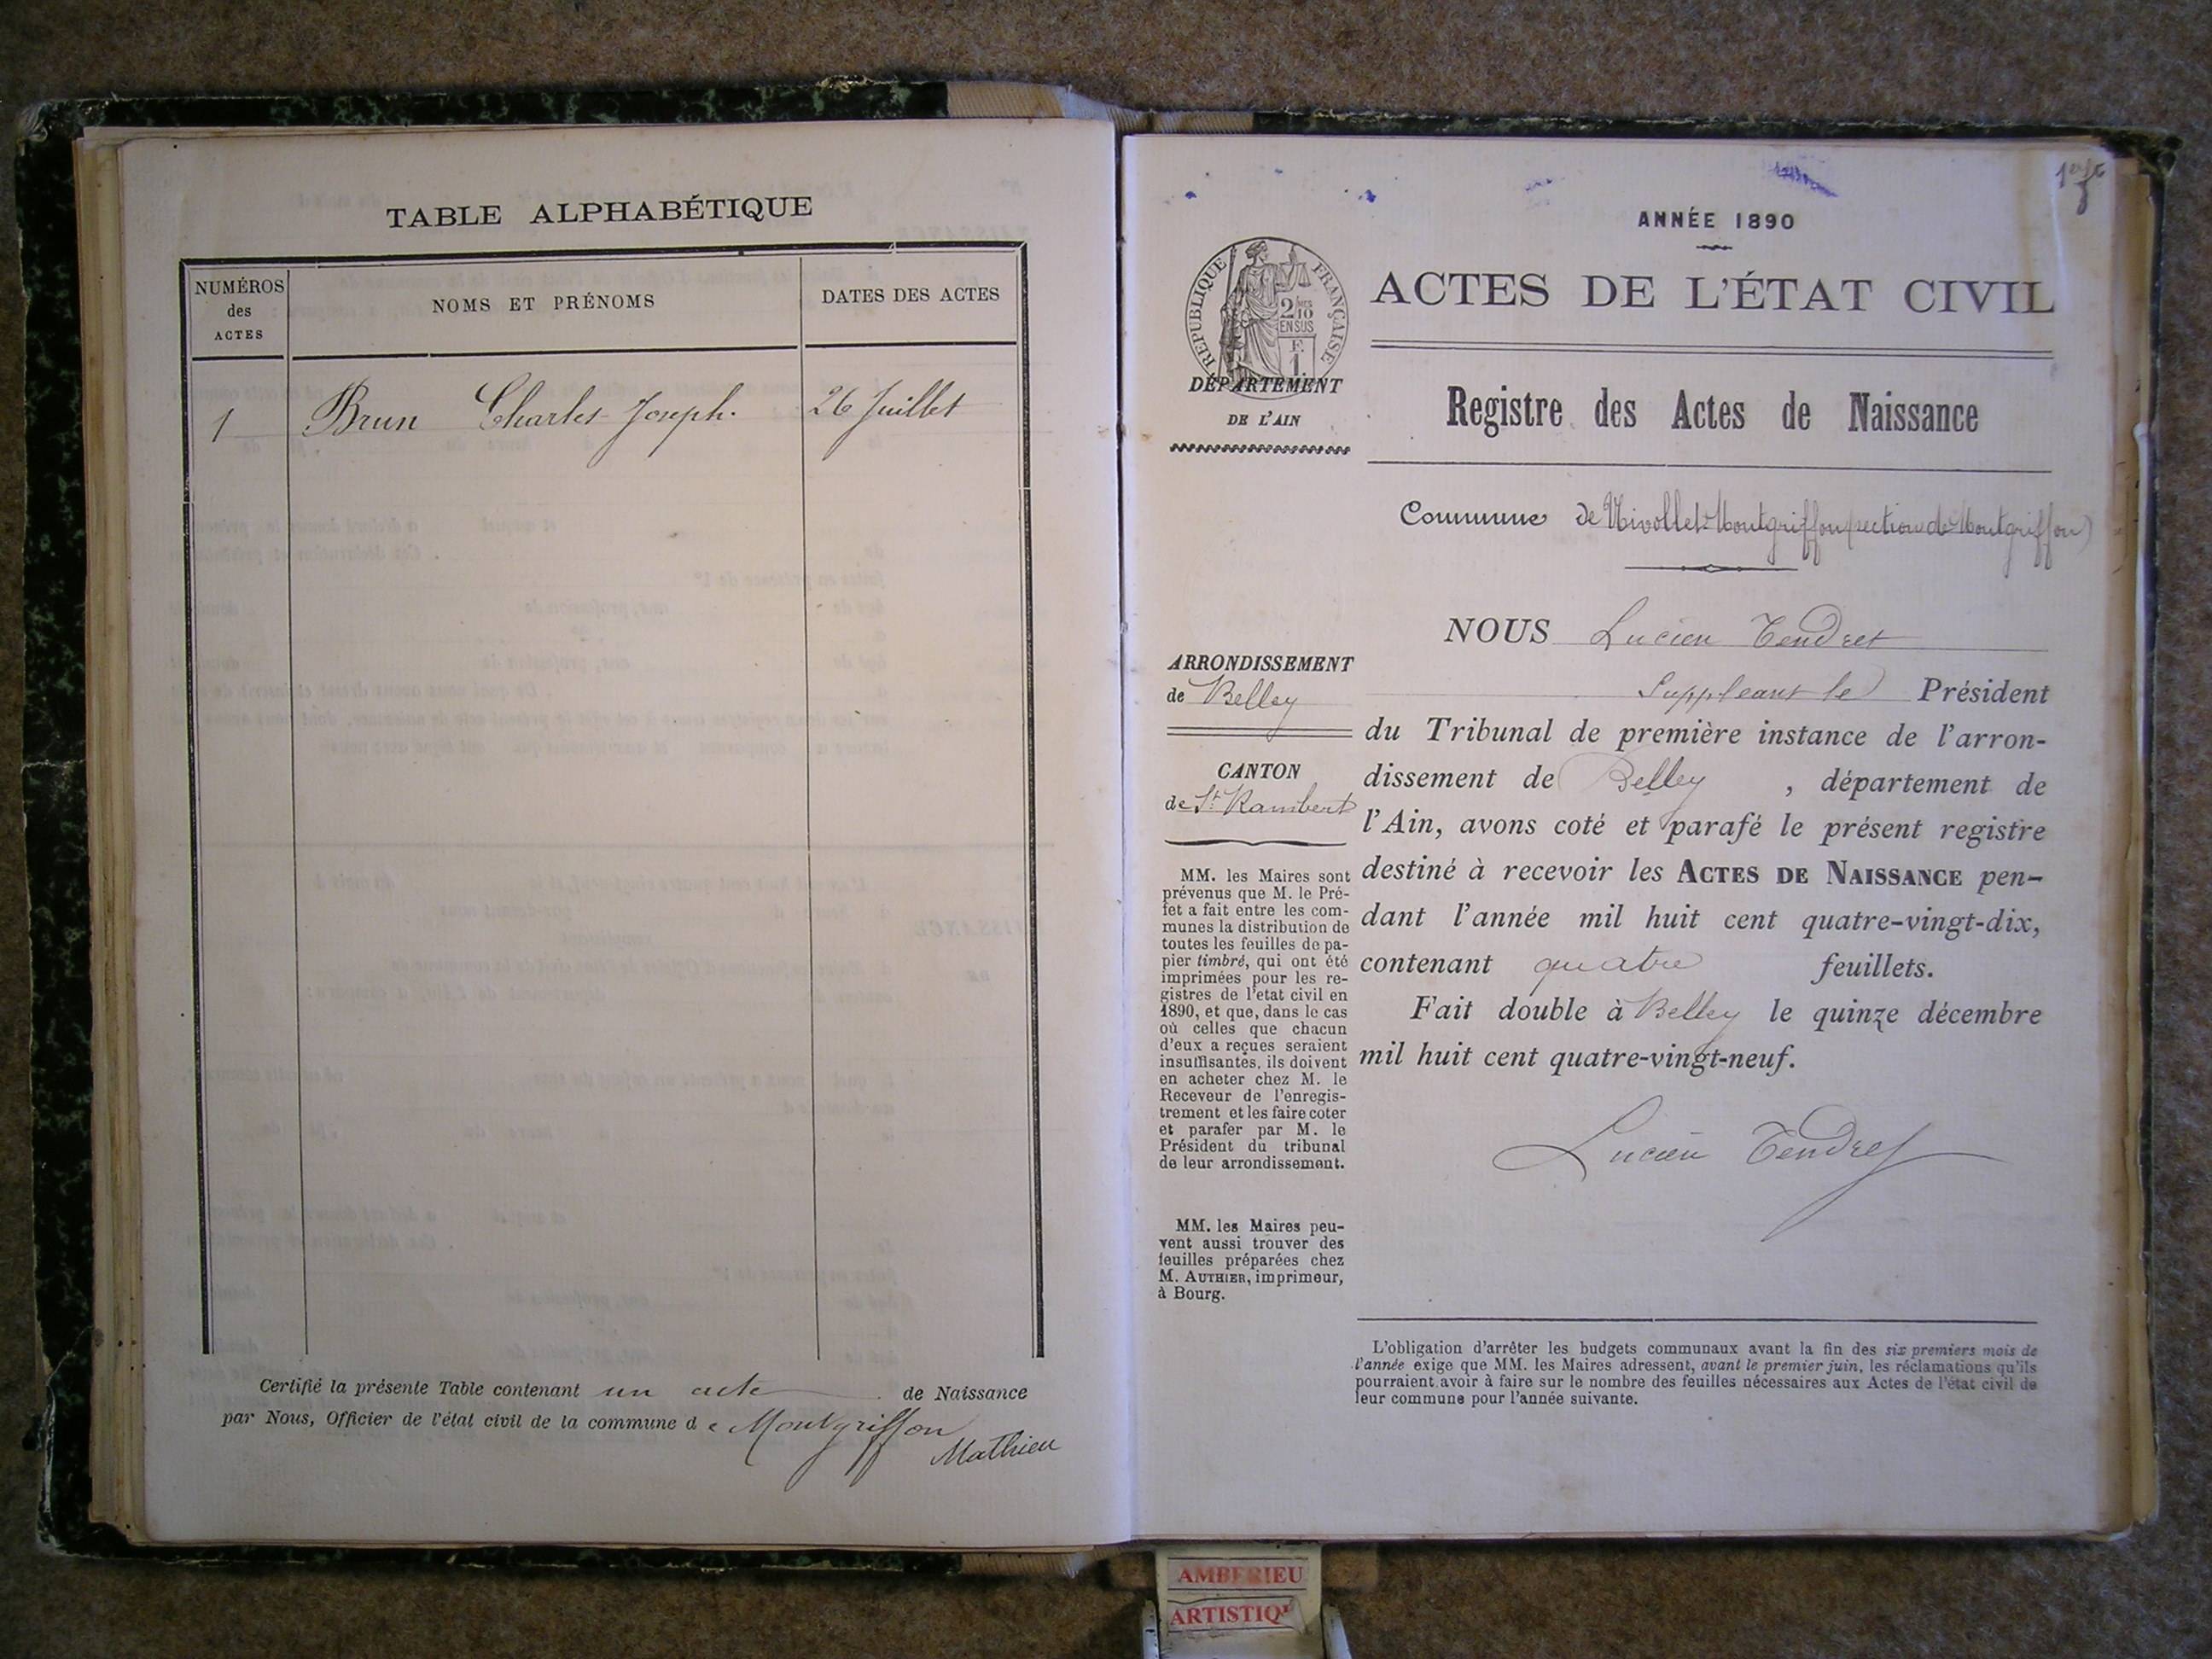 TABLE ALPHABÉTIQUE
NUMÉROS
des
ACTES
NOMS ET PRÉNOMS
DATES DES ACTES
1 Brun Charles Joseph. 26 Juillet
Certifié la présente Table contenant un acte de Naissance
par Nous, Officier de l'état civil de la commune de Montgriffon
Mathieu
ANNÉE 1890
RÉPUBLIQUE FRANÇAISE
2/10
EN SUS
F.
1
ACTES DE L'ÉTAT CIVIL
DÉPARTEMENT
DE L'AIN
Registre des Actes de Naissance
Commune de Nivollet-Montgriffon (section de Montgriffon)
NOUS Lucien Tendret
Suppléant le Président
du Tribunal de première instance de l'arron-
dissement de Belley , département de
l'Ain, avons coté et parafé le présent registre
destiné à recevoir les ACTES DE NAISSANCE pen-
dant l'année mil huit cent quatre-vingt-dix,
contenant quatre feuillets.
Fait double à Belley le quinze décembre
mil huit cent quatre-vingt-neuf.
Lucien Tendret
ARRONDISSEMENT
de Belley
CANTON
de St. Rambert
MM. les Maires sont
prévenus que M. le Pré-
fet a fait entre les com-
munes la distribution de
toutes les feuilles de pa-
pier timbré, qui ont été
imprimées pour les re-
gistres de l'etat civil en
1890, et que, dans le cas
où celles que chacun
d'eux a reçues seraient
insuffisantes, ils doivent
en acheter chez M. le
Receveur de l'enregis-
trement et les faire coter
et parafer par M. le
Président du tribunal
de leur arrondissement.
MM. les Maires peu-
vent aussi trouver des
feuilles préparées chez
M. AUTHIER, imprimeur,
à Bourg.
L'obligation d'arrêter les budgets communaux avant la fin des six premiers mois de
l'année exige que MM. les Maires adressent, avant le premier juin, les réclamations qu'ils
pourraient avoir à faire sur le nombre des feuilles nécessaires aux Actes de l'état civil de
leur commune pour l'année suivante.
AMBERIEU